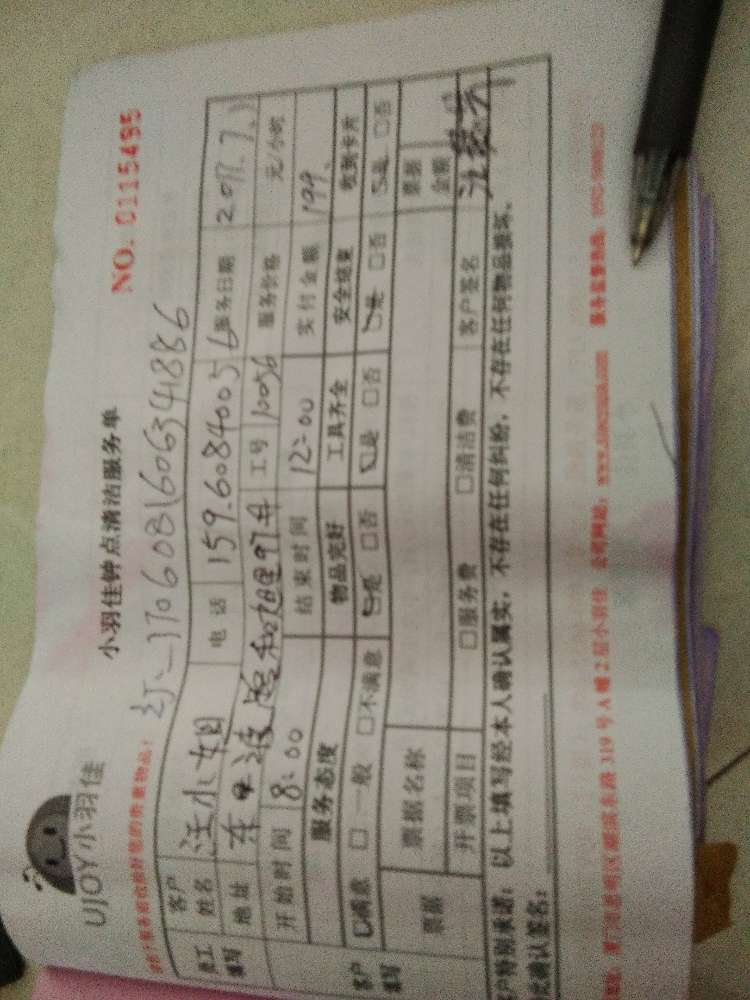 UJOY小羽佳
小羽佳钟点清洁服务单
NO. 0115495
170608160634886
员工填写
客户姓名 汪小姐 电话 159.60840056 服务日期 2017.7.1
地址 工号 10056 服务价格 元/小时
开始时间 8:00 结束时间 12:00 实付金额 199.
客户填写
服务态度 物品完好 工具齐全 安全结束 收到卡片
☑满意 □一般 □不满意 ☑是 □否 ☑是 □否 ☑是 □否 ☑是 □否
票据 票据名称 票据金额
开票项目 □服务费 □清洁费 客户签名
客户特别承诺：以上填写经本人确认属实，不存在任何纠纷，不存在任何物品损坏。
此确认签名：
地址：厦门市思明区湖滨东路319号A幢2层小羽佳 公司网站： 服务监督热线：